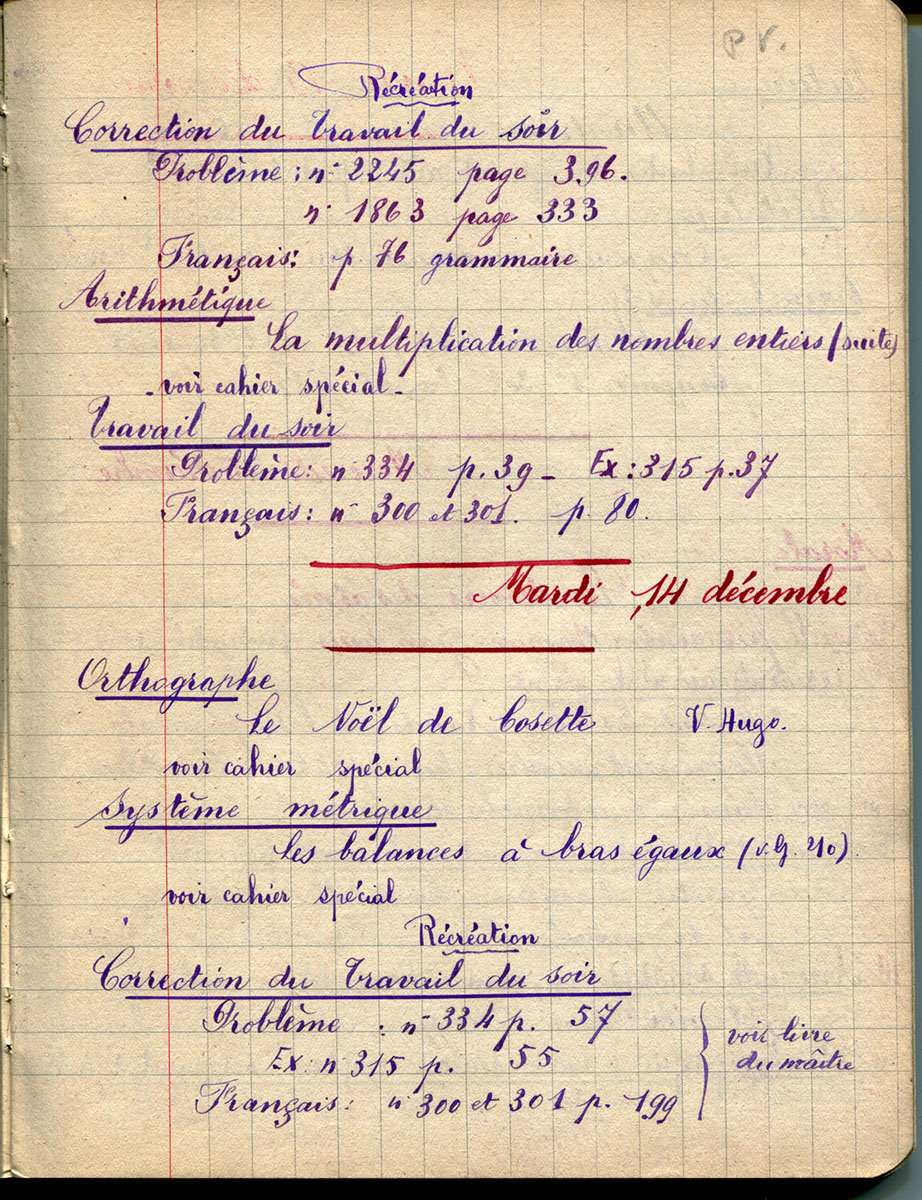 P V.
Récréation
Correction du travail du soir
Problème : n° 2245 page 396.
n° 1863 page 333
Français : p 76 grammaire
Arithmétique
La multiplication des nombres entiers (suite)
- voir cahier spécial -
Travail du soir
Problème : n° 334 p. 39 - Ex : 315 p. 37
Français : n° 300 et 301. p. 80.
Mardi, 14 décembre
Orthographe
Le Noël de Cosette V. Hugo.
voir cahier spécial
Système métrique
Les balances à bras égaux (v.G. 210).
voir cahier spécial
Récréation
Correction du travail du soir
Problème : n° 334 p. 57
Ex : n° 315 p. 55
voir livre
du maître
Français : n° 300 et 301 p. 199